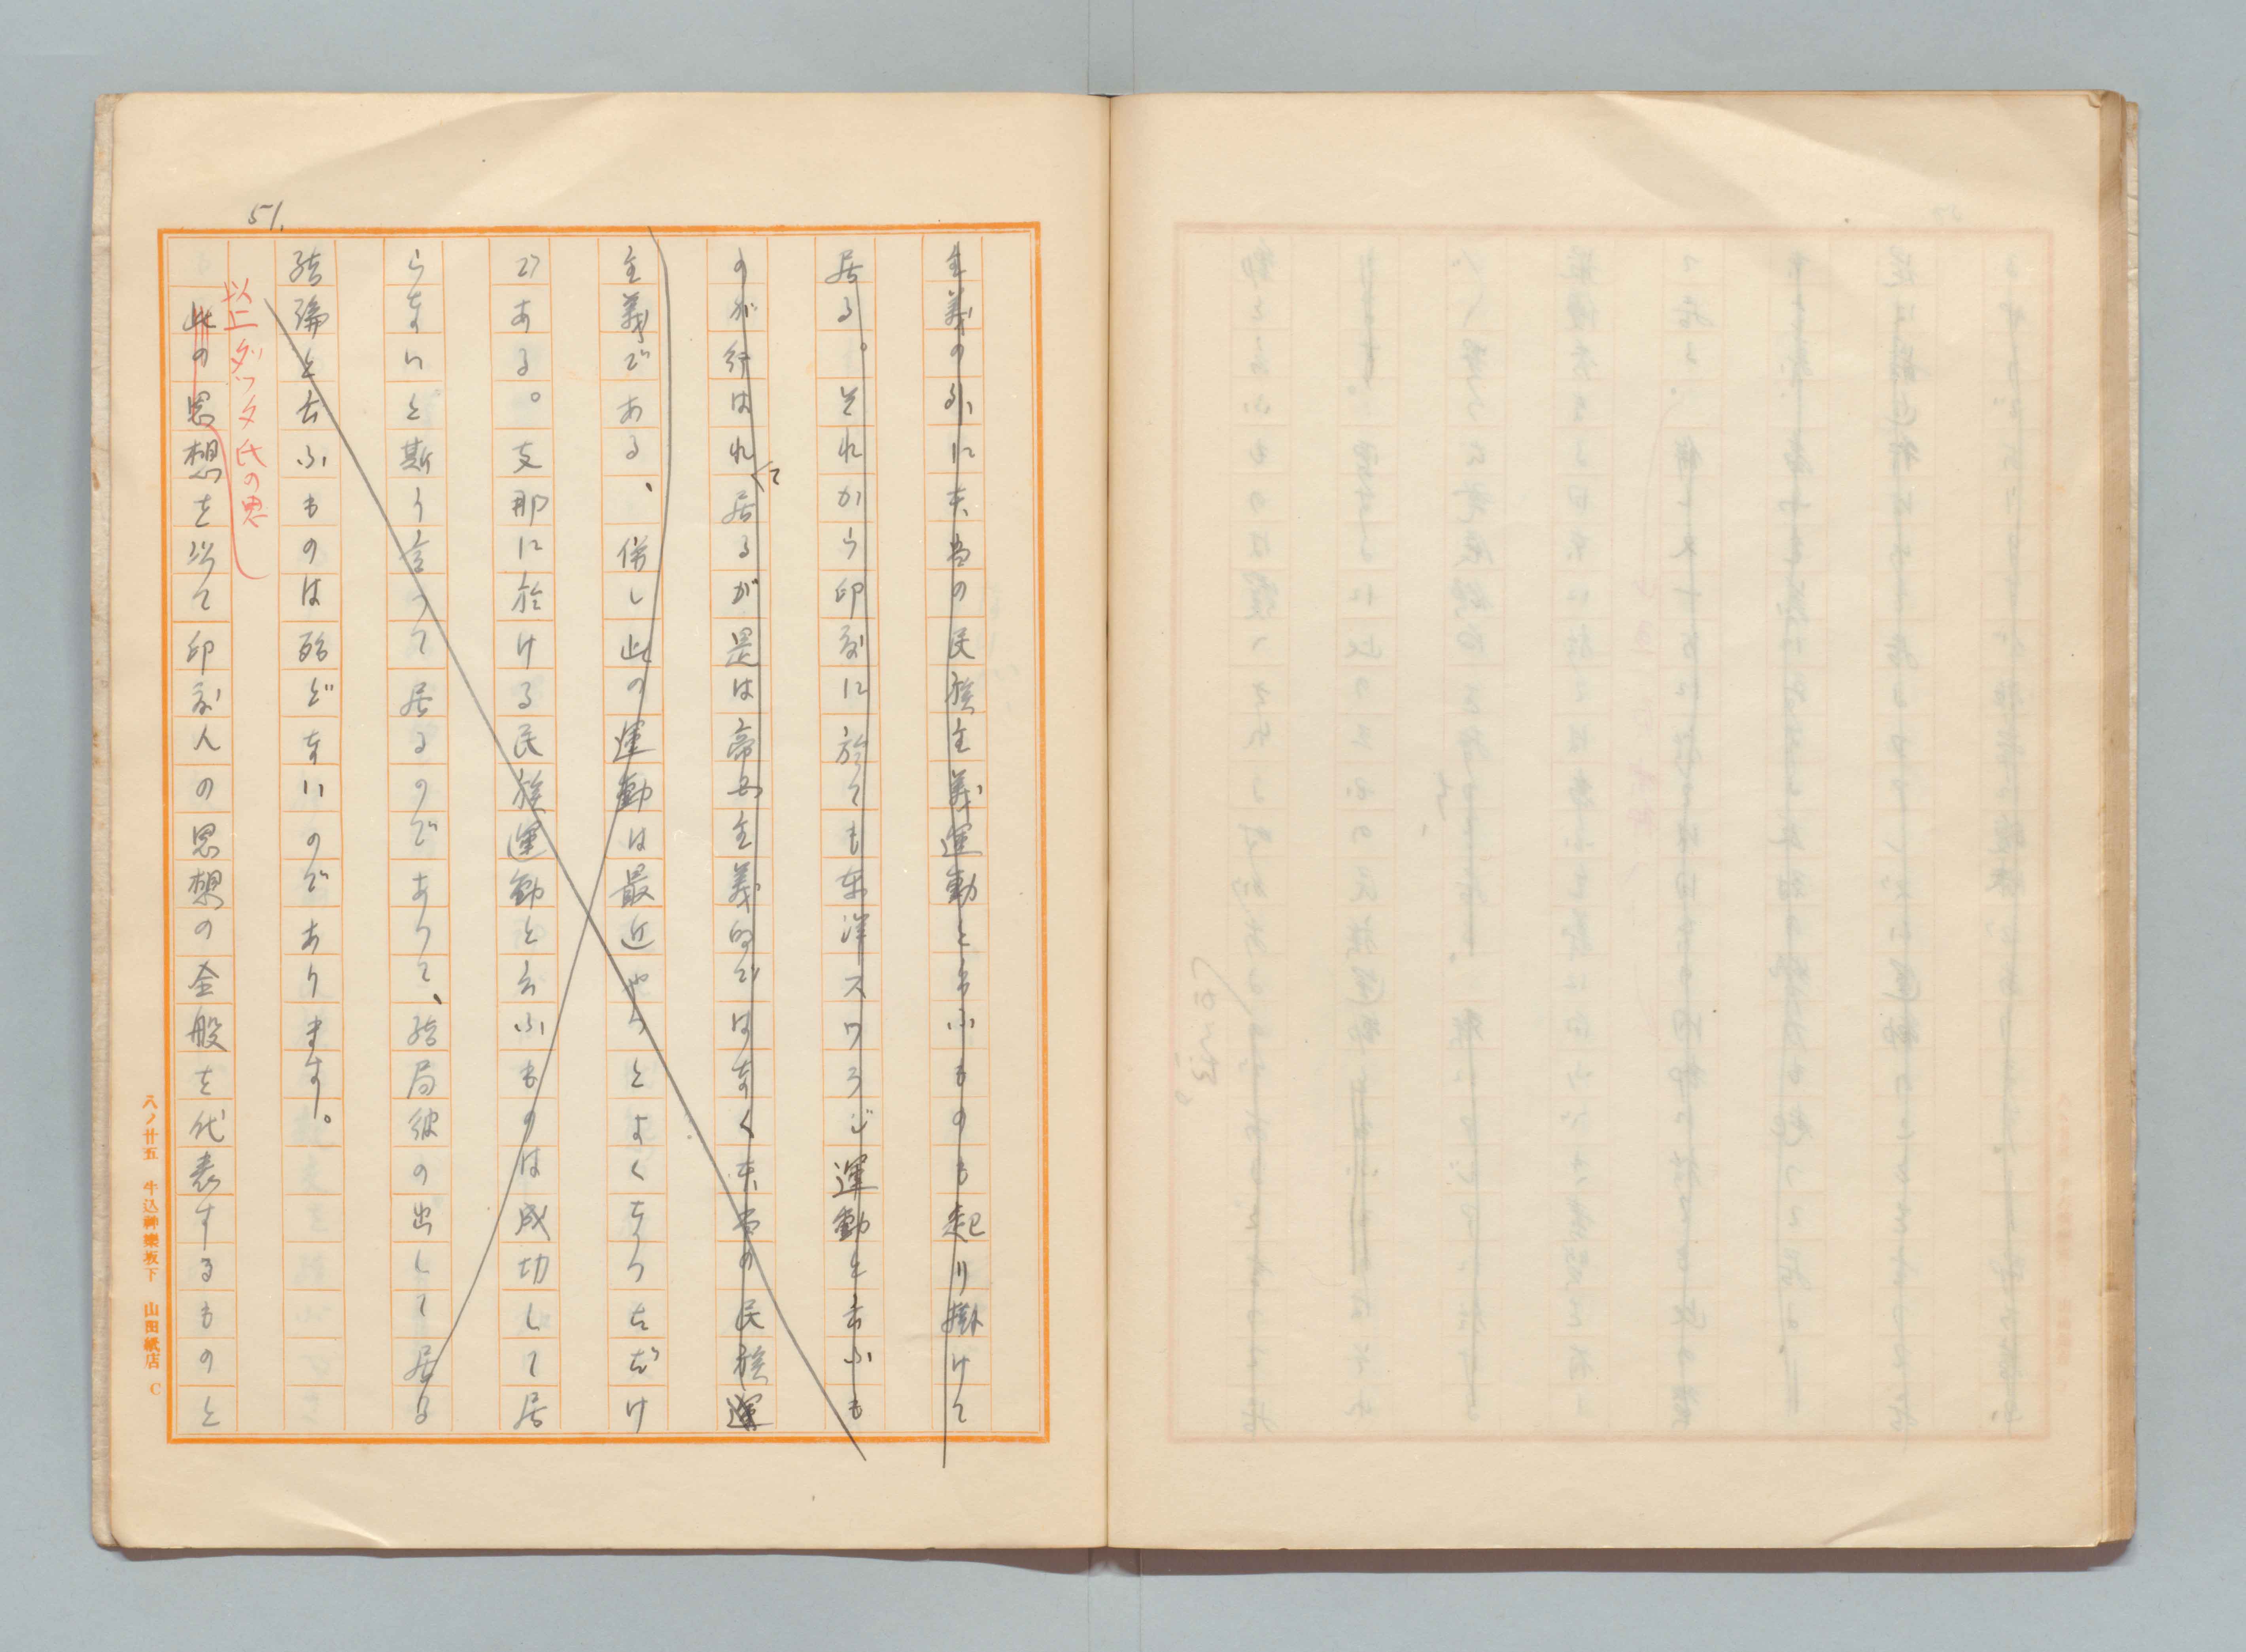 51.
主義の外に本当の民族主義運動と云ふものも起り掛けて
居る。それから印度に於ても東洋スワラジ運動と云ふも
のが行はれて居るが是は帝国主義的ではなく本当の民族運
主義である、併し此の運動は最近やつとよくなつただけ
である。支那に於ける民族運動と云ふものは成功して居
らないと斯う言つて居るのであつて、結局彼の出して居る
結論と云ふものは殆どないのであります。
以上ダツタ氏の思
此の思想を以て印度人の思想の全般を代表するものと
八ノ廿五 牛込神樂坂下 山田紙店 C